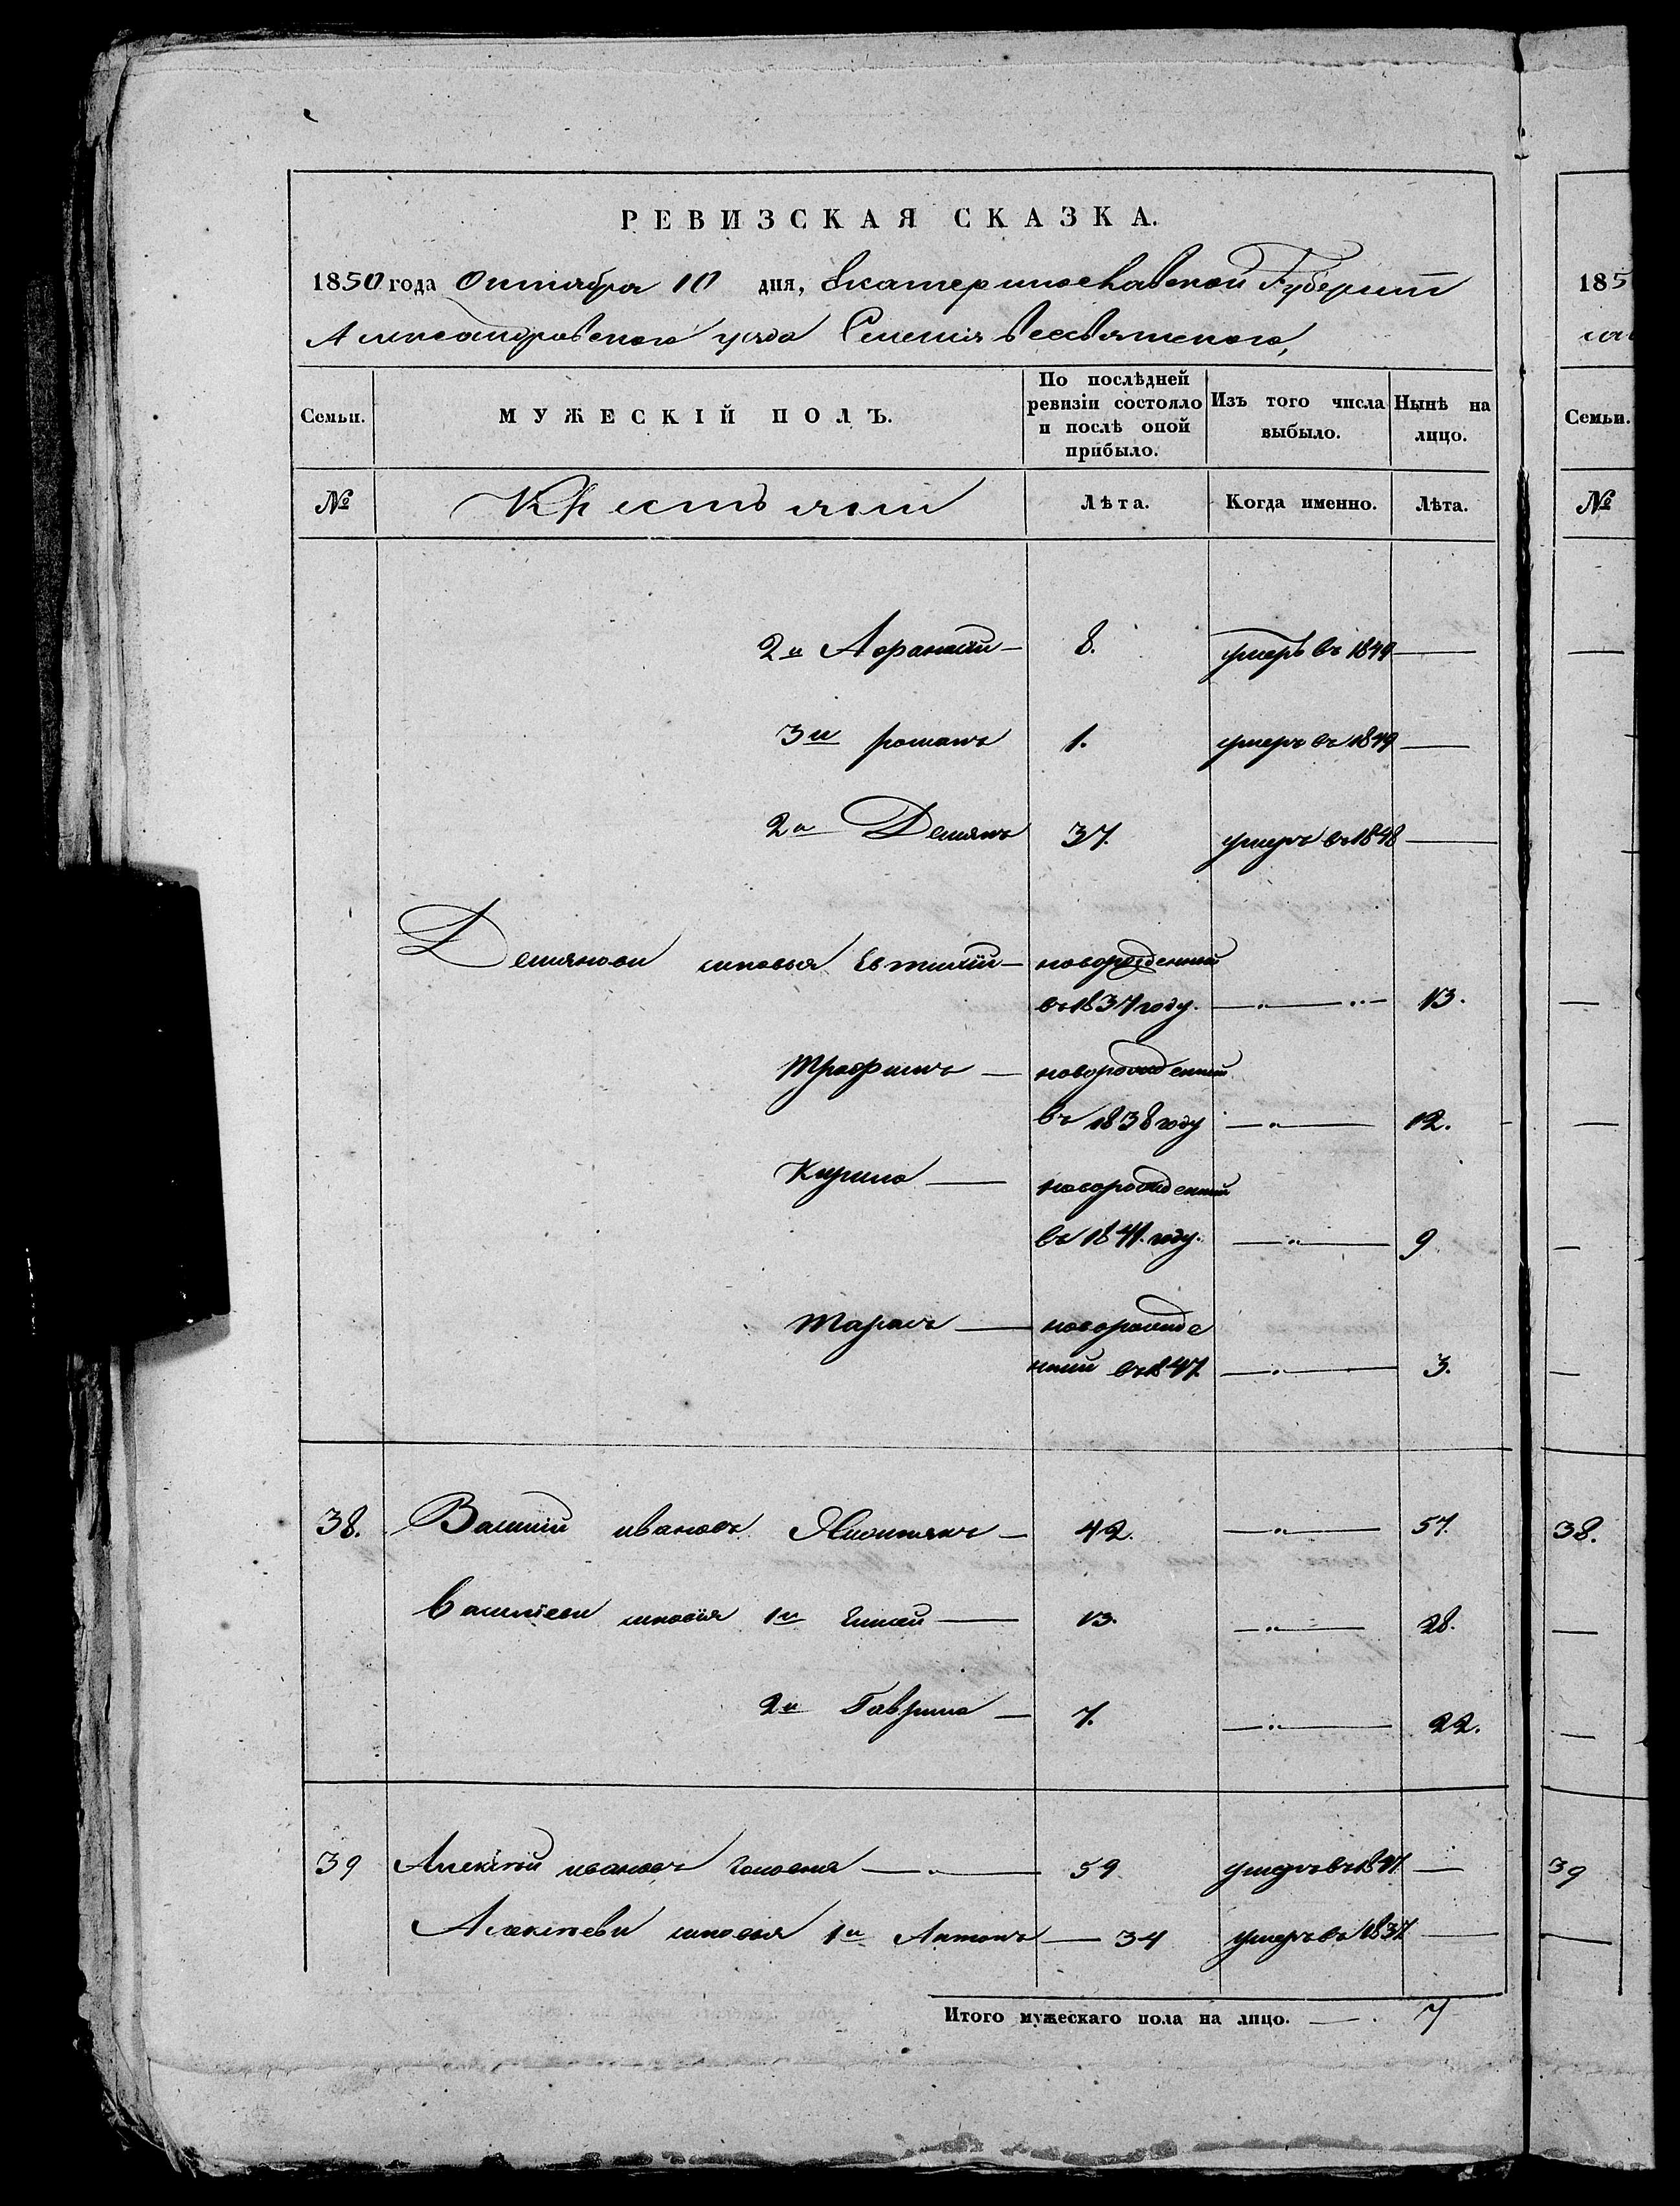 РЕВИЗСКАЯ СКАЗКА.
1850 года Октября 10 дня, Екатеринославской Губерніи
Александровскаго уезда Селенія Всесвятскаго,
Семьи. МУЖЕСКІЙ ПОЛЪ. По послѣдней ревизіи состояло и послѣ оной прибыло. Изъ того числа выбыло. Нынѣ на лицо.
№ Крестьяни Лѣта. Когда именно. Лѣта.
2й Афанасій — 8. умеръ въ 1849 —
3й романъ 1. умеръ въ 1849 —
2й Демянъ 37. умеръ въ 1848 —
Демянови сыновья Евтихій — новорожденний
въ 1837 году. — 13.
Трофимъ — новорожденний
въ 1838 году — 12.
Кирило — новорожденний
въ 1841. году. — 9
Тарасъ — новорожде
нний въ 1847. — 3.
38. Василій ивановъ — 42. — 57.
Василіеви сыновія 1й Елисей — 13. — 28.
2й Гаврило — 7. — 22.
39 Алексѣй ивановъ головня — 59 умеръ въ 1841 —
Алексѣеви сыновья 1й Антонъ — 34 умеръ въ 1837 —
Итого мужескаго пола на лицо. — 7
185
Семьи.
№
38.
39